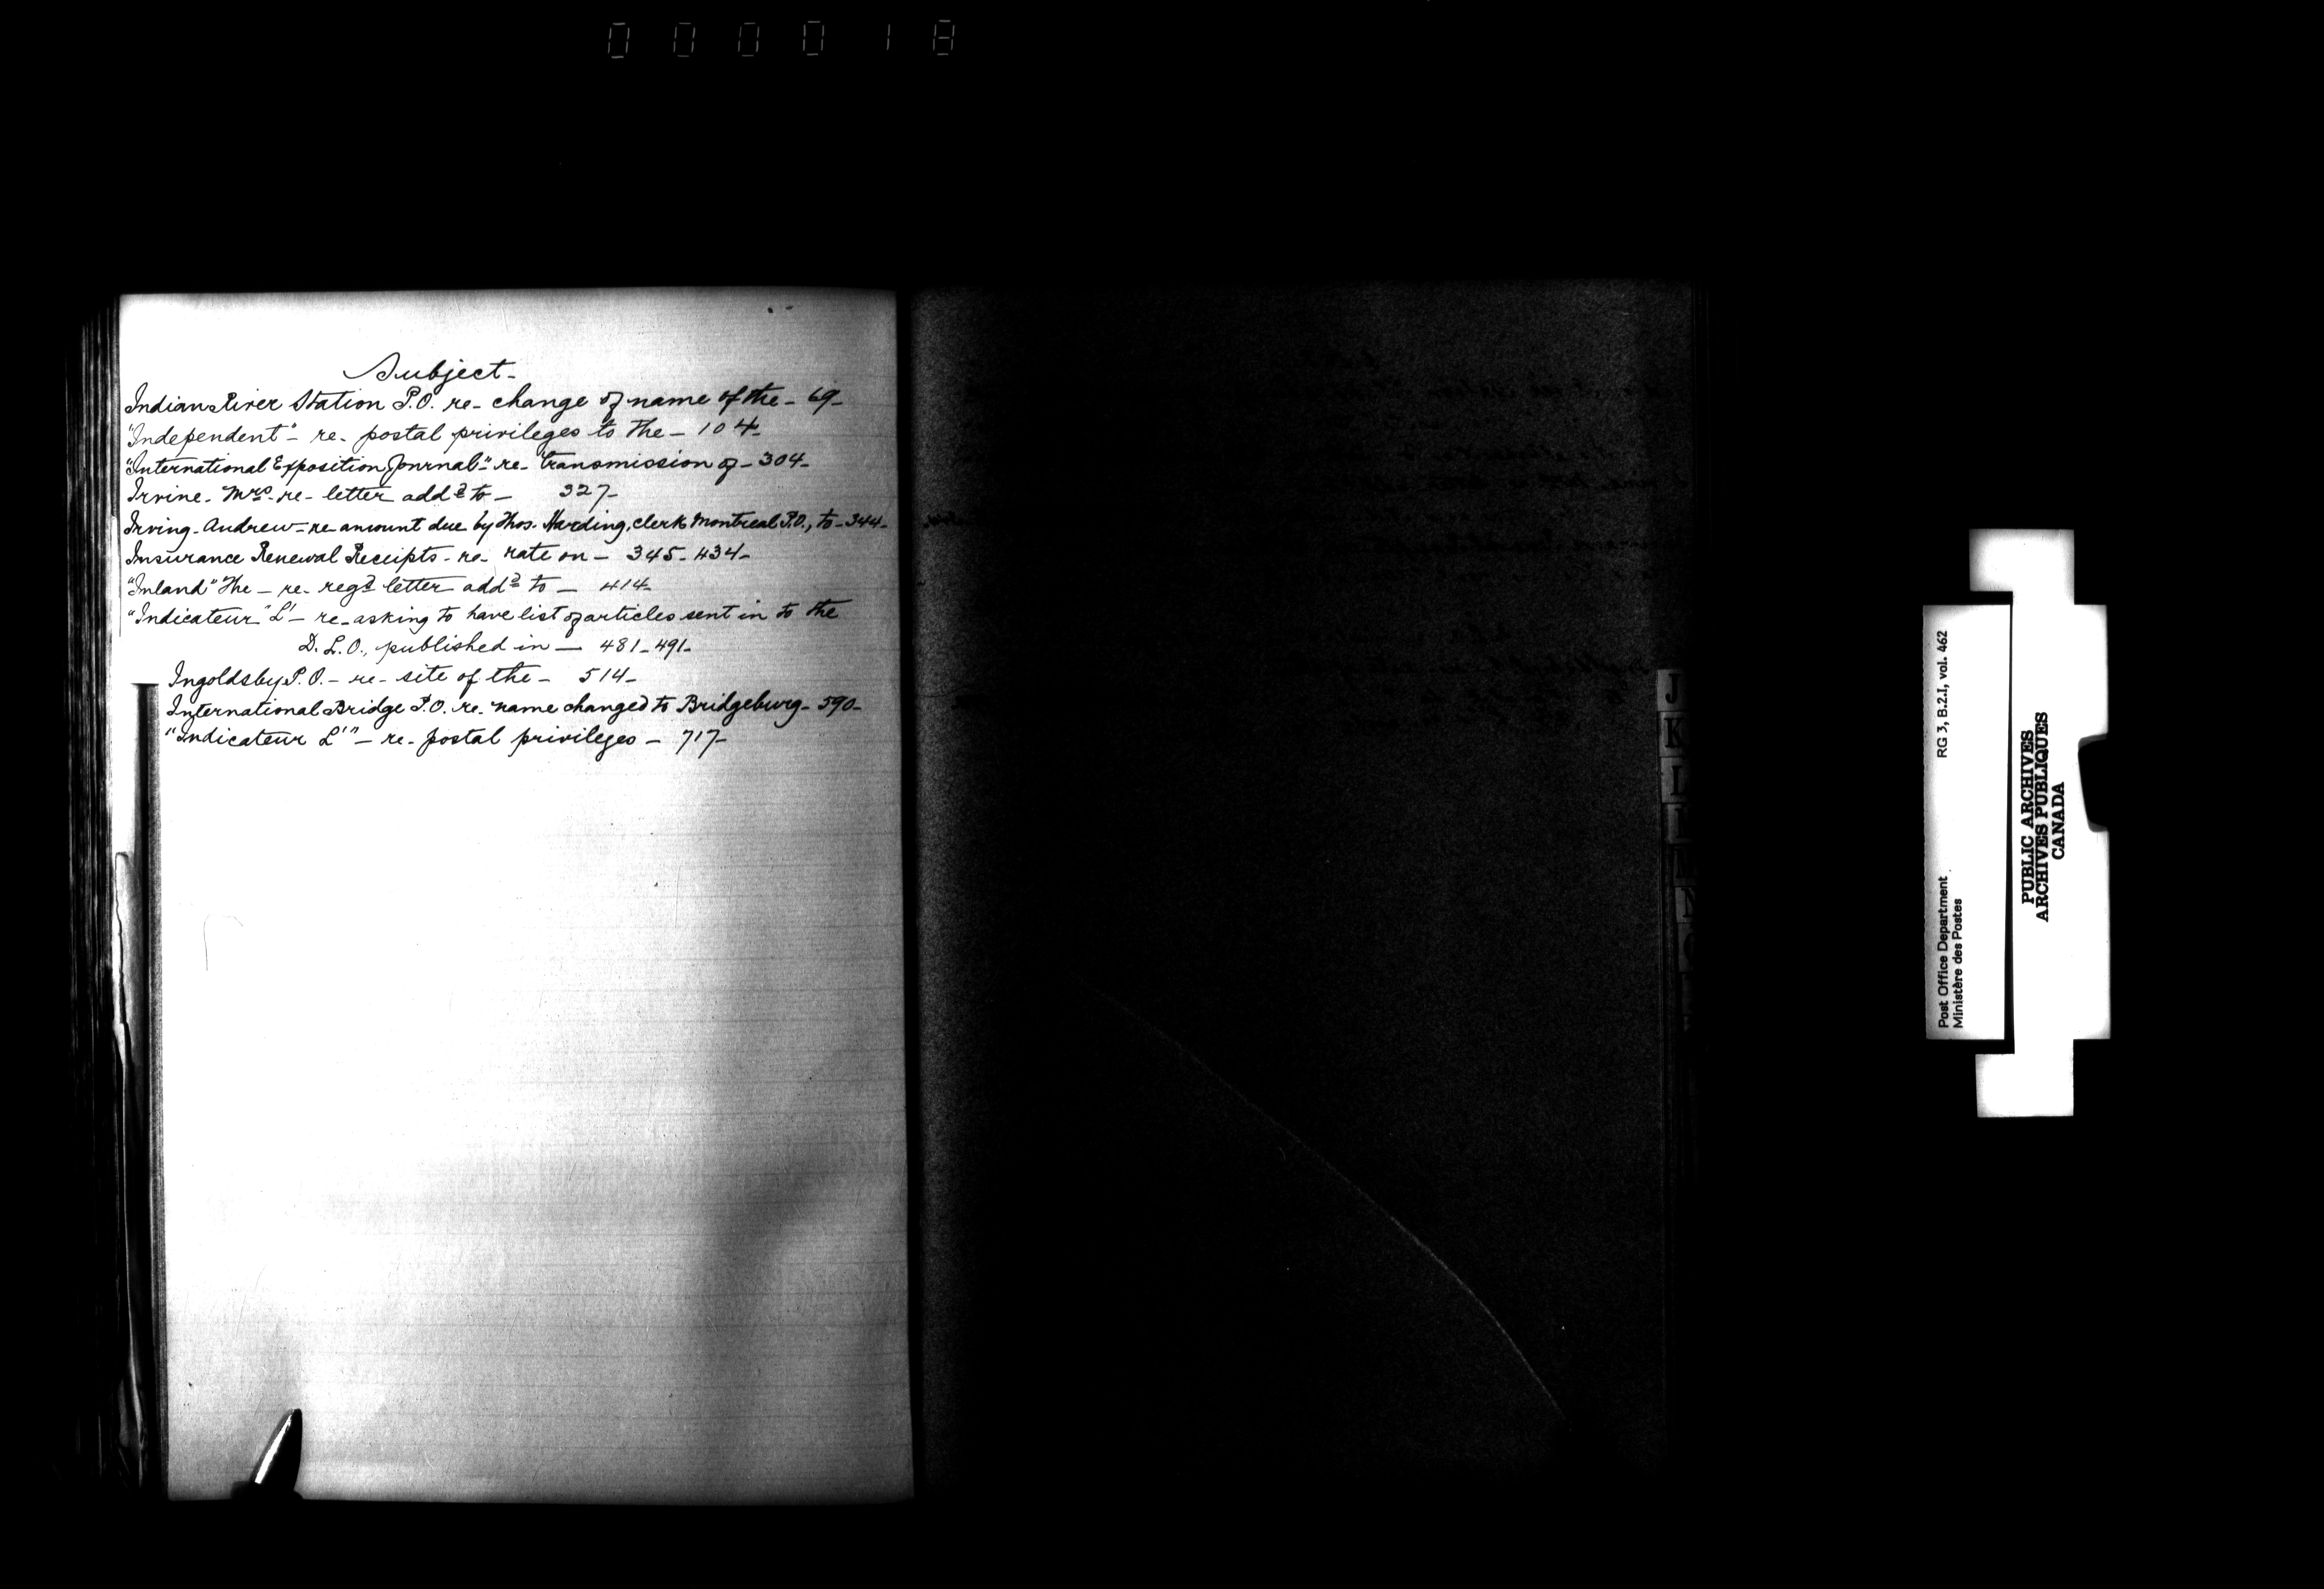 000018
Subject-
Indian River Station P.O. re- change of name of the- 69-
"Independent"- re- postal privileges to the- 104-
"International Exposition Journal"- re- transmission of- 304-
Irvine- Mrs- re- letter addd to- 327-
Irving- Andrew- re amount due by Thos. Harding, clerk Montreal P.O., to- 344-
Insurance Renewal Receipts- re- rate on- 345- 434-
"Inland" The- re- regd letter addd to- 414-
"Indicateur" L'- re- asking to have list of articles sent in to the
D.L.O., published in- 481- 491-
Ingoldsby P.O.- re- site of the- 514-
International Bridge P.O. re- name changed to Bridgeburg- 590-
"Indicateur L'"- re- postal privileges- 717-
J
K
L
N
O
RG 3, B.2.I, vol. 462
Post Office Department
Ministère des Postes
PUBLIC ARCHIVES
ARCHIVES PUBLIQUES
CANADA